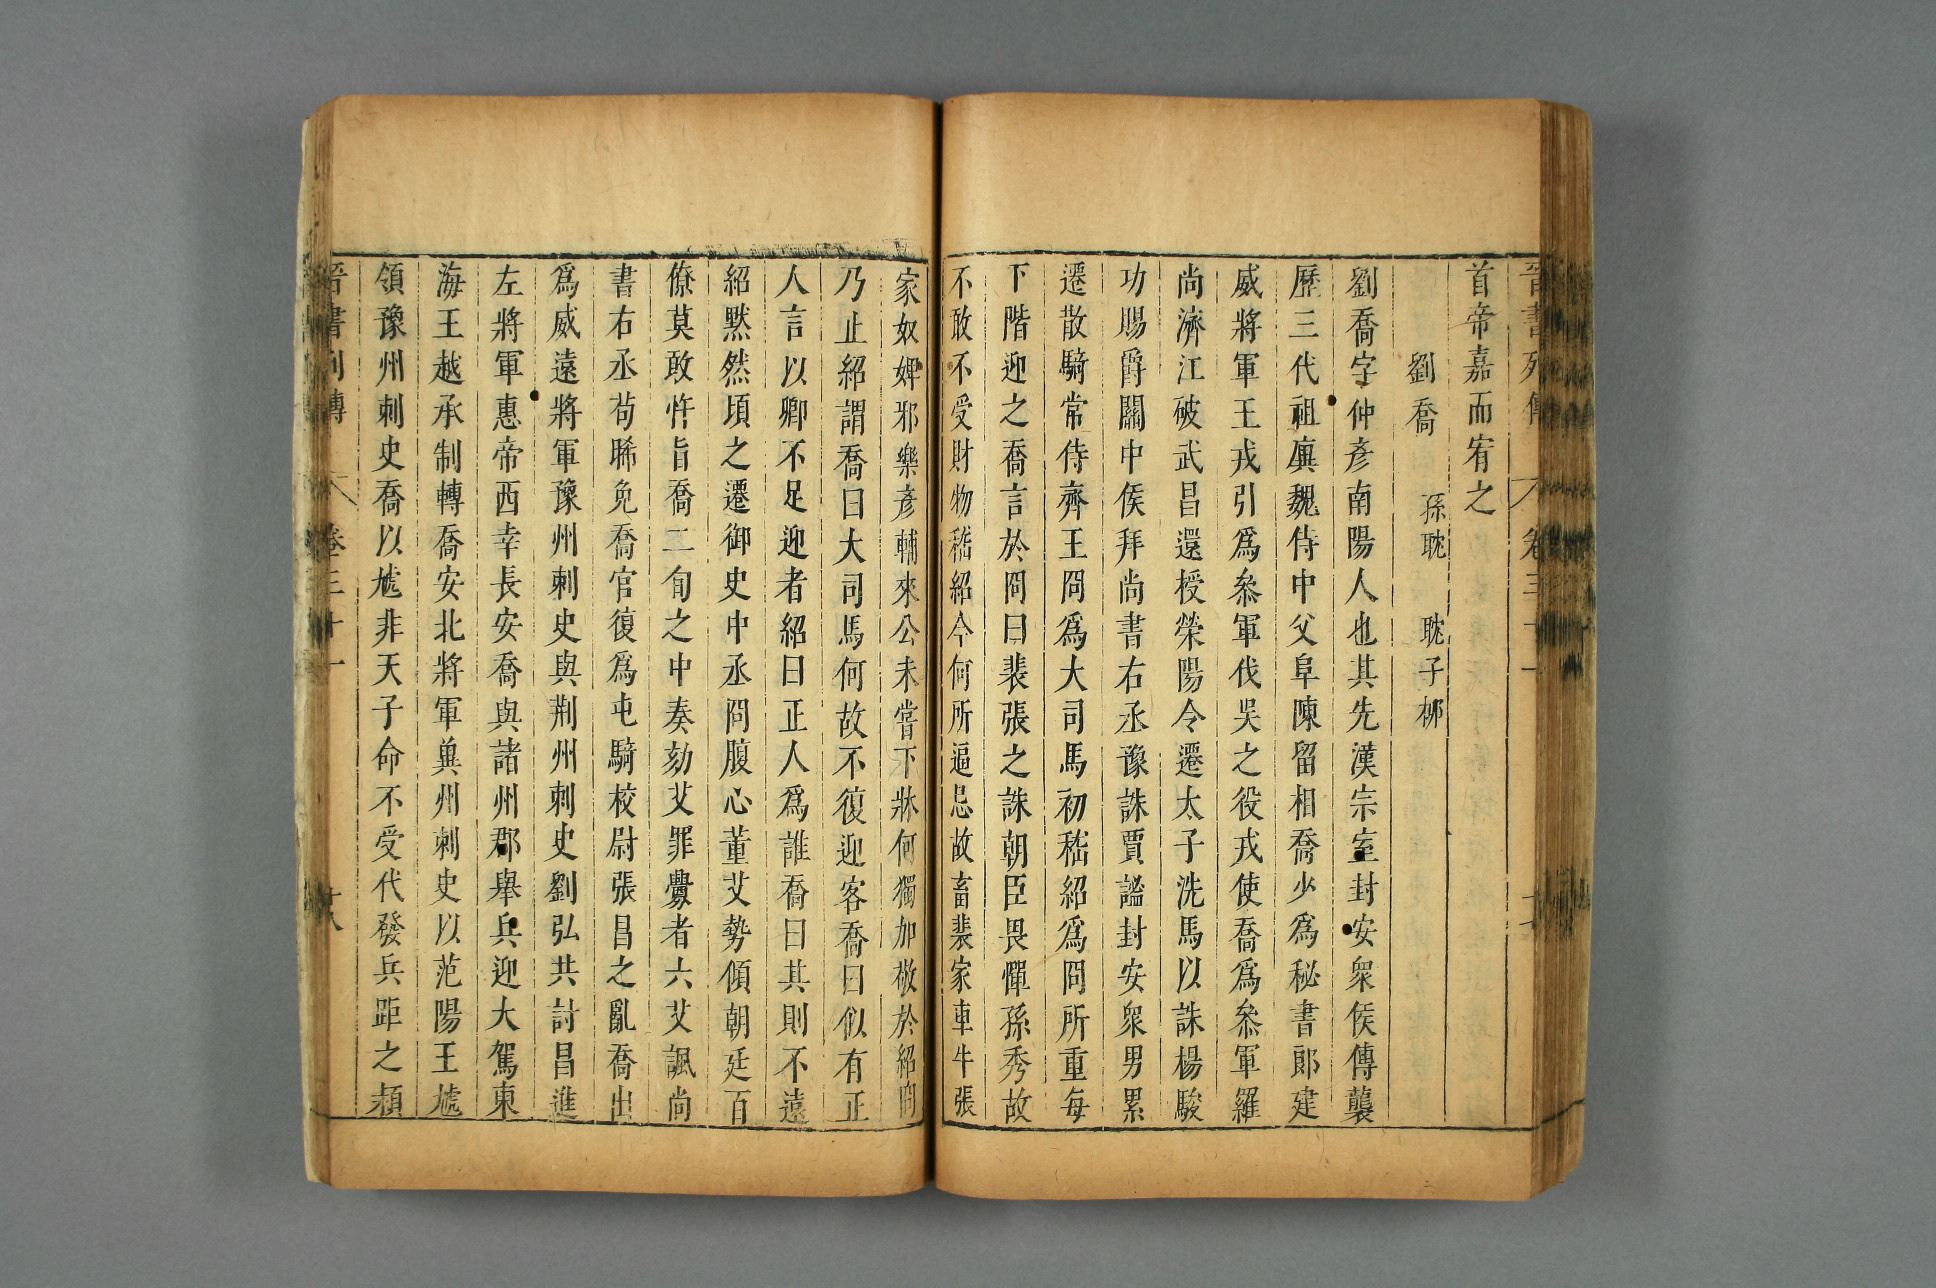 晉書列傳 卷三十一
首帝嘉而宥之
劉喬 孫耽 耽子柳
劉喬字仲彥南陽人也其先漢宗室封安衆侯傳襲
歷三代祖廙魏侍中父阜陳留相喬少爲秘書郎建
威將軍王戎引爲叅軍伐吳之役戎使喬爲叅軍羅
尚濟江破武昌還授榮陽令遷太子洗馬以誅楊駿
功賜爵關中侯拜尚書右丞豫誅賈謐封安衆男累
遷散騎常侍齊王冏爲大司馬初嵇紹爲冏所重每
下階迎之喬言於冏曰裴張之誅朝臣畏憚孫秀故
不敢不受財物嵇紹今何所逼忌故畜裴家車牛張
家奴婢邪樂彥輔來公未嘗下牀何獨加敬於紹冏
乃止紹謂喬曰大司馬何故不復迎客喬曰似有正
人言以卿不足迎者紹曰正人爲誰喬曰其則不遠
紹黙然頃之遷御史中丞冏腹心董艾勢傾朝廷百
僚莫敢忤旨喬二旬之中奏劾艾罪釁者六艾諷尚
書右丞茍晞免喬官復爲屯騎校尉張昌之亂喬出
爲威遠將軍豫州刺史與荆州刺史劉弘共討昌進
左將軍惠帝西幸長安喬與諸州郡舉兵迎大駕東
海王越承制轉喬安北將軍兾州刺史以范陽王虓
領豫州刺史喬以虓非天子命不受代發兵距之潁
晉書列傳 卷三十一 十八